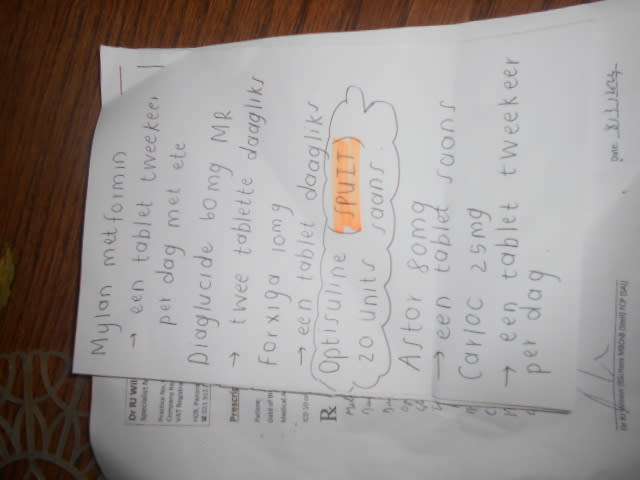 Mylan metformin
→ een tablet tweekeer
per dag met ete
Diaglucide 60mg MR
→ twee tablette daagliks
Forxiga 10mg
→ een tablet daagliks
Optisuline (SPUIT)
20 units saans.
Astor 80mg
→ een tablet saans
Carloc 25mg
→ een tablet tweekeer
per dag
Dr RJ Wil
Specialist
Practice No.
Company
VAT Regist
Prescri
Patient:
Date of
Medical
Rx
Date: